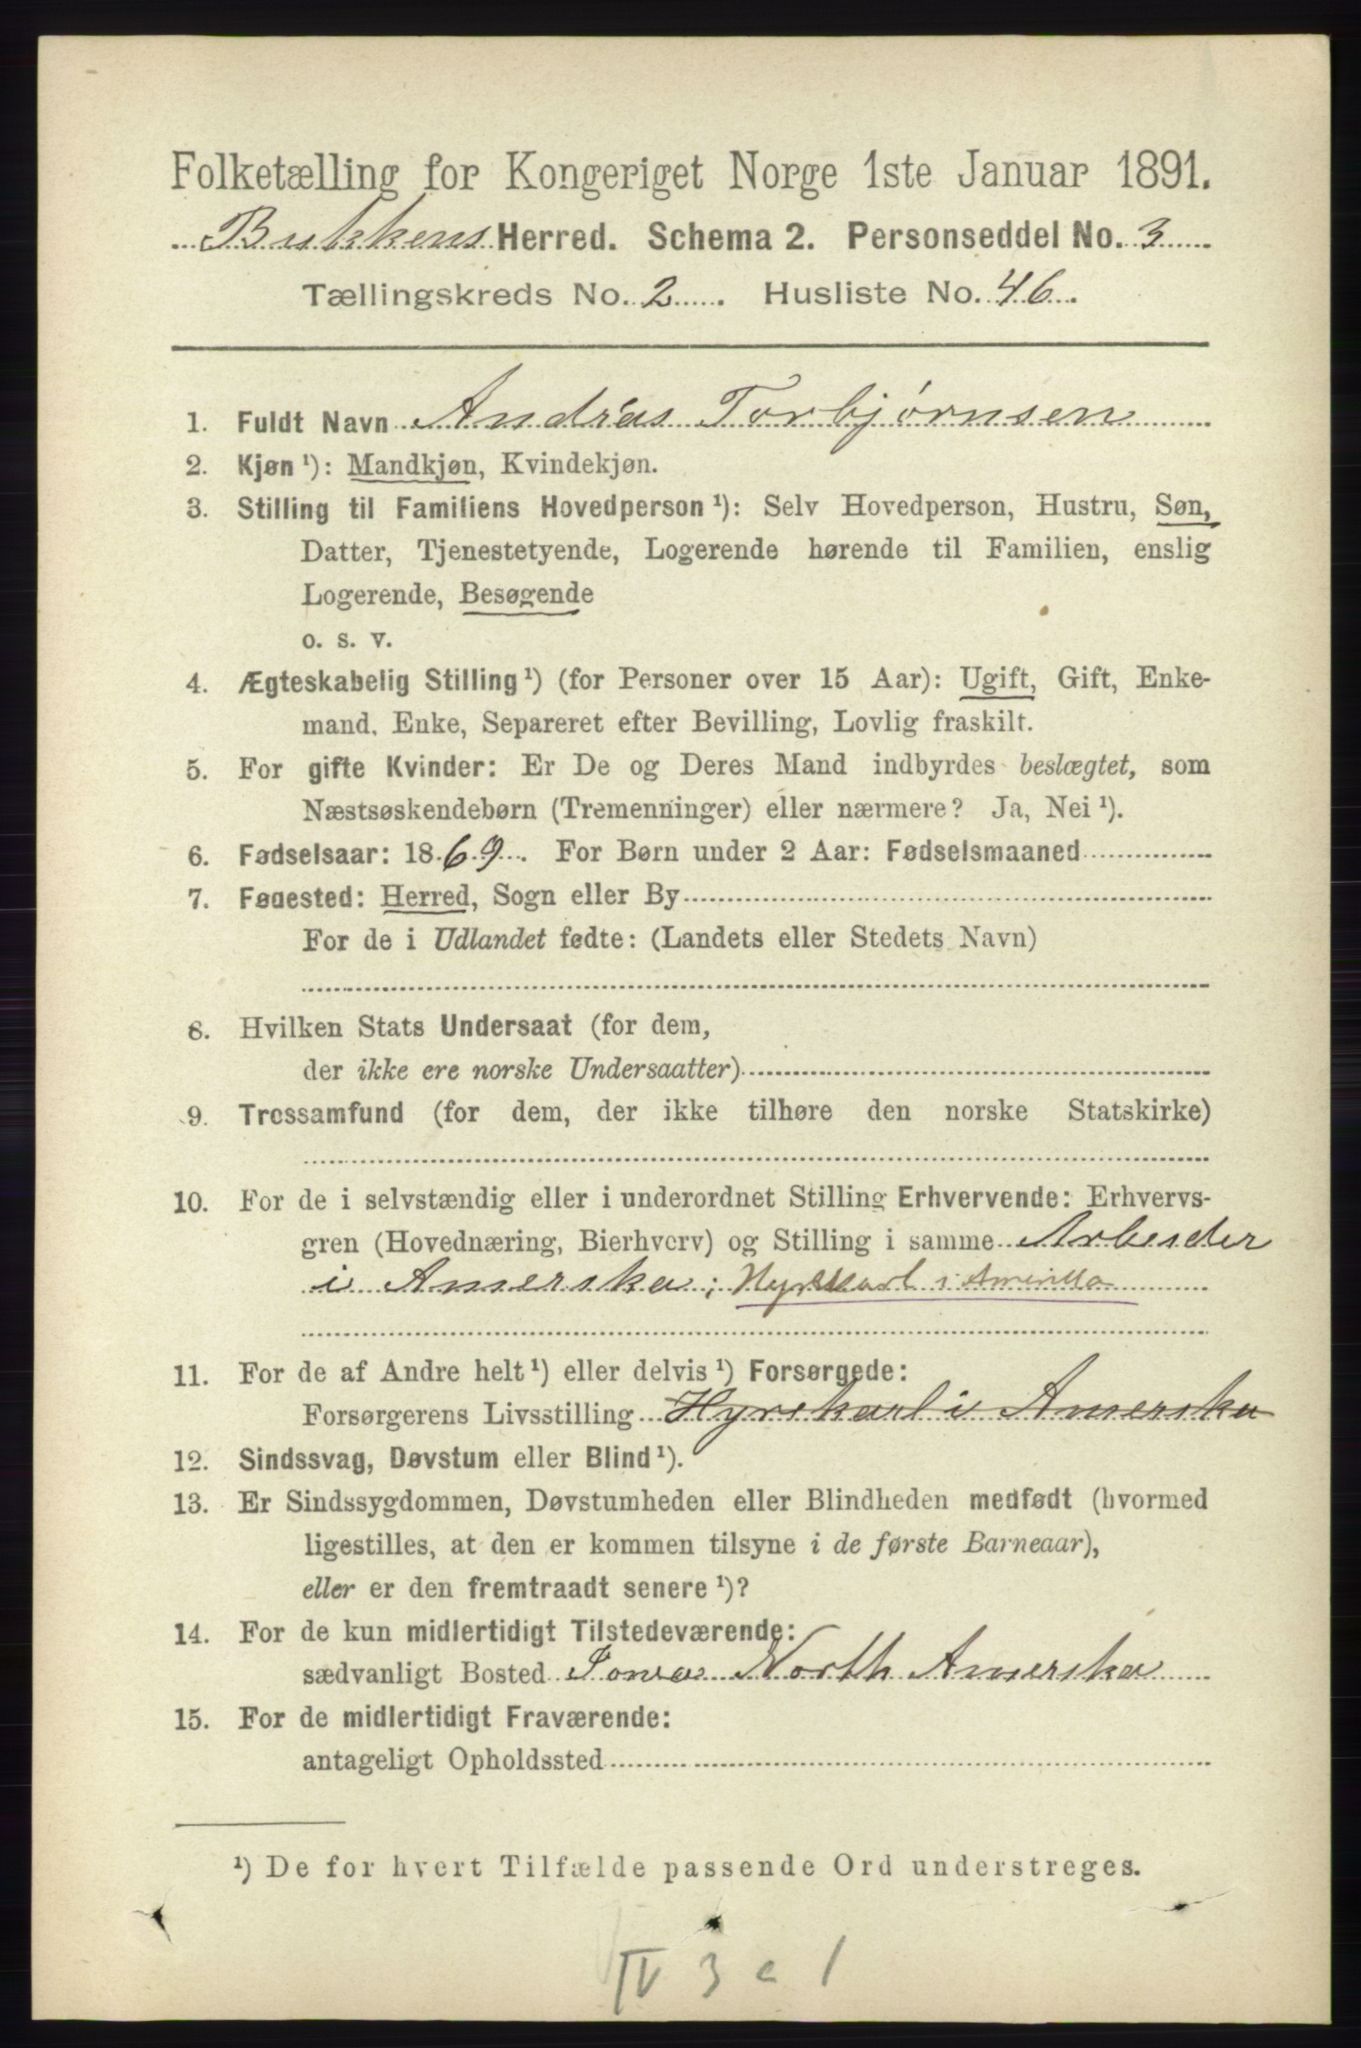 Folketælling for Kongeriget Norge 1ste Januar 1891.
Bukkens Herred. Schema 2. Personseddel No. 3
Tællingskreds No. 2. Husliste No. 46.
1. Fuldt Navn Andras Torbjørnsen
2. Kjøn ¹): Mandkjøn, Kvindekjøn.
3. Stilling til Familiens Hovedperson ¹): Selv Hovedperson, Hustru, Søn,
Datter, Tjenestetyende, Logerende hørende til Familien, enslig
Logerende, Besøgende
o. s. v.
4. Ægteskabelig Stilling ¹) (for Personer over 15 Aar): Ugift, Gift, Enke-
mand, Enke, Separeret efter Bevilling, Lovlig fraskilt.
5. For gifte Kvinder: Er De og Deres Mand indbyrdes beslægtet, som
Næstsøskendebørn (Tremenninger) eller nærmere? Ja, Nei ¹).
6. Fødselsaar: 1869. For Børn under 2 Aar: Fødselsmaaned
7. Fødested: Herred, Sogn eller By
For de i Udlandet fødte: (Landets eller Stedets Navn)
8. Hvilken Stats Undersaat (for dem,
der ikke ere norske Undersaatter)
9. Trossamfund (for dem, der ikke tilhøre den norske Statskirke)
10. For de i selvstændig eller i underordnet Stilling Erhvervende: Erhvervs-
gren (Hovednæring, Bierhverv) og Stilling i samme Arbeider
i Amerika; Hyrekarl i Amerika
11. For de af Andre helt ¹) eller delvis ¹) Forsørgede:
Forsørgerens Livsstilling Hyrekarl i Amerika
12. Sindssvag, Døvstum eller Blind ¹).
13. Er Sindssygdommen, Døvstumheden eller Blindheden medfødt (hvormed
ligestilles, at den er kommen tilsyne i de første Barneaar),
eller er den fremtraadt senere ¹)?
14. For de kun midlertidigt Tilstedeværende:
sædvanligt Bosted Iowa North Amerika
15. For de midlertidigt Fraværende:
antageligt Opholdssted
¹) De for hvert Tilfælde passende Ord understreges.
IV 3 c 1